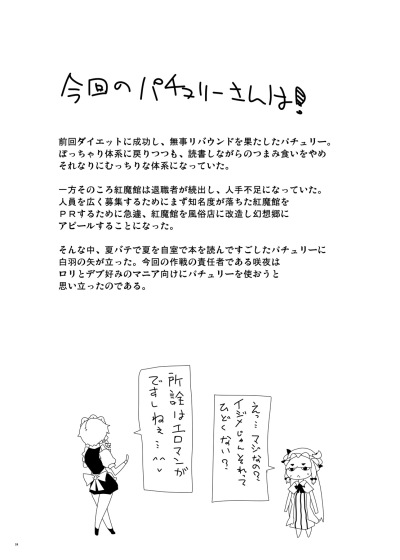 今回のパチュリーさんは!
前回ダイエットに成功し、無事リバウンドを果たしたパチュリー。
ぽっちゃり体系に戻りつつも、読書しながらのつまみ食いをやめ
それなりにむっちりな体系になっていた。
一方そのころ紅魔館は退職者が続出し、人手不足になっていた。
人員を広く募集するためにまず知名度が落ちた紅魔館を
PRするために急遽、紅魔館を風俗店に改造し幻想郷に
アピールすることになった。
そんな中、夏バテで夏を自室で本を読んですごしたパチュリーに
白羽の矢が立った。今回の作戦の責任者である咲夜は
ロリとデブ好みのマニア向けにパチュリーを使おうと
思い立ったのである。
えっ…マジなの?
イジメじゃんそれって
ひどくない?
所詮はエロマンガ
ですしねぇ…^^